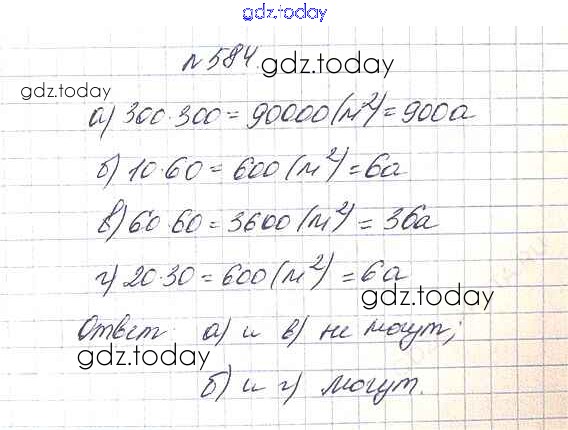 gdz.today
№584.
gdz.today
gdz.today
а) 300·300 = 90000 (м²) = 900а
б) 10·60 = 600 (м²) = 6а
в) 60·60 = 3600 (м²) = 36а
г) 20·30 = 600 (м²) = 6а
gdz.today
Ответ а) и в) не могут;
gdz.today
б) и г) могут.